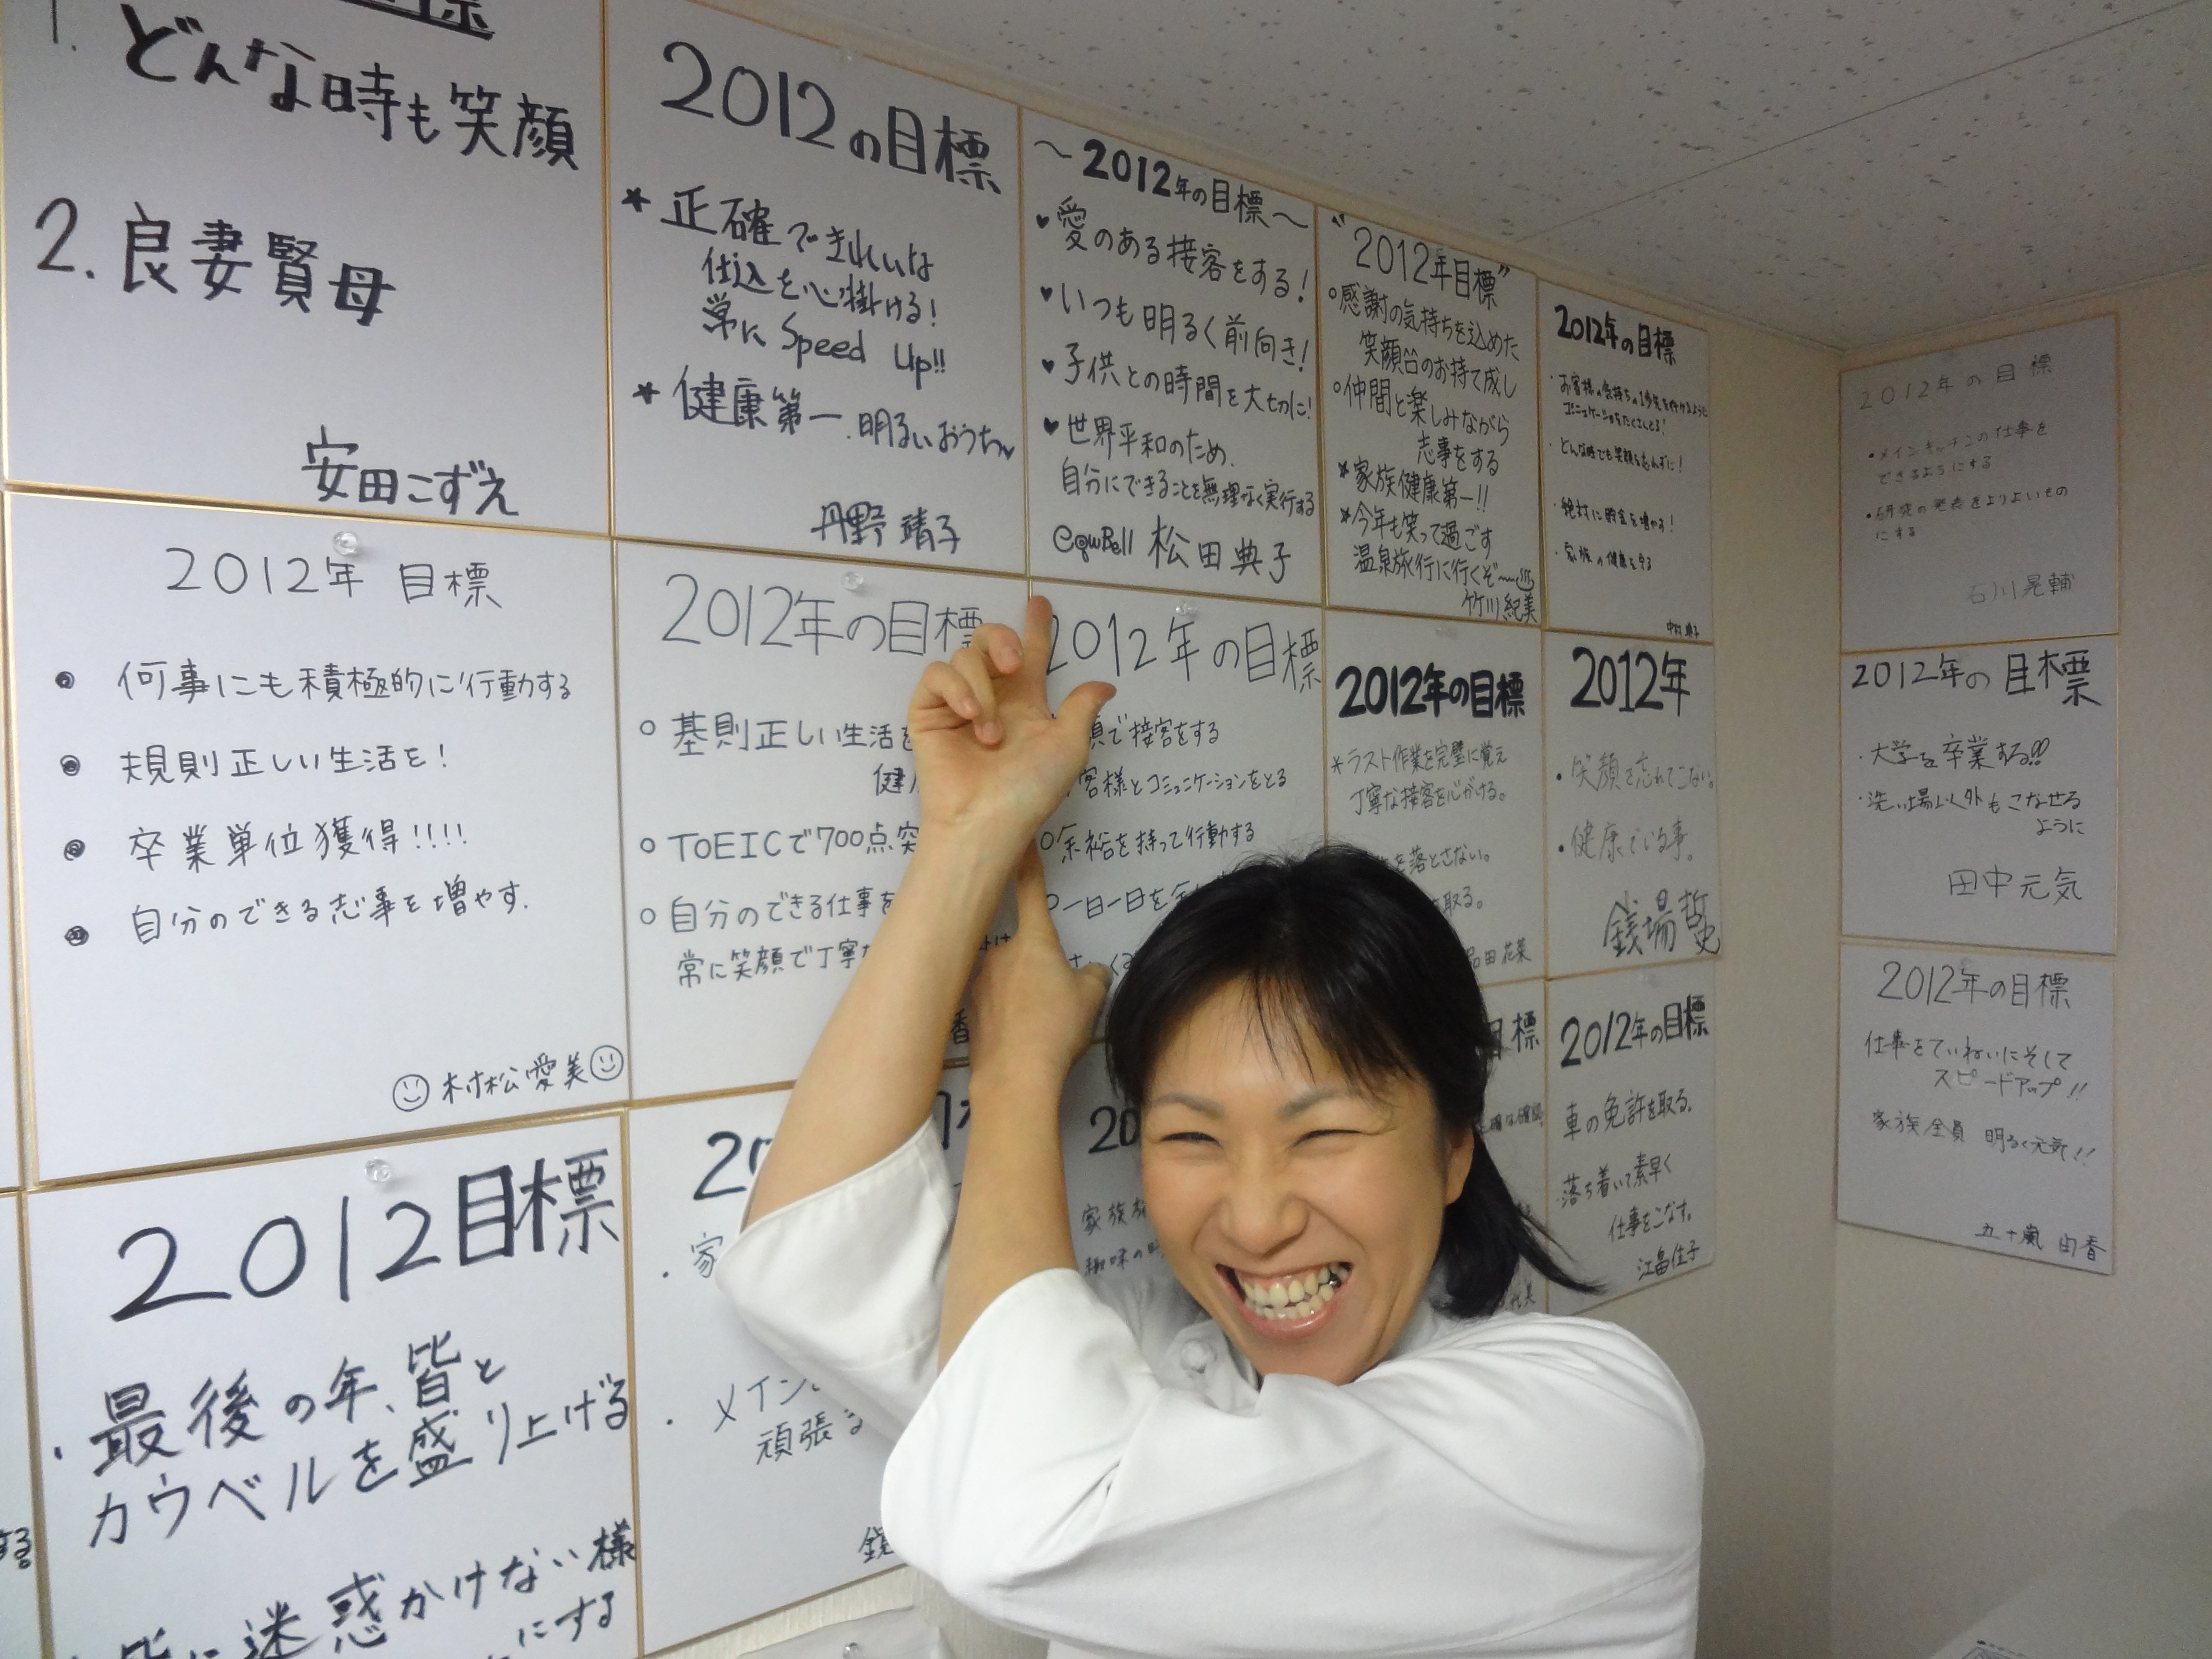 1. どんな時も笑顔
2. 良妻賢母
安田こずえ
2012の目標
★ 正確できれいな
仕込を心掛ける!
常に Speed Up!!
★ 健康第一. 明るいおうち♥
丹野 靖子
～2012年の目標～
♥愛のある接客をする!
♥いつも明るく前向き!
♥子供との時間を大切に!
♥世界平和のため.
自分にできることを無理なく実行する
CowBell 松田典子
"2012年目標"
○感謝の気持ちを込めた
笑顔のお持て成し
○仲間と楽しみながら
志事をする
★家族健康第一!!
★今年も笑って過ごす
温泉旅行に行くぞ〜♨
竹川紀美
2012年の目標
・どんな時でも笑顔を忘れずに!
・絶対に貯金を増やす!
・家族の健康を守る
2012年の目標
・メインキッチンの仕事を
できるようにする
・研究の発表をよりよいもの
にする
石川晃輔
2012年 目標
● 何事にも積極的に行動する
● 規則正しい生活を!
● 卒業単位獲得!!!!
● 自分のできる志事を増やす.
☺村松愛美☺
2012年の目標
○ 基則正しい生活を
健
○ TOEICで700点突
○ 自分のできる仕事を
常に笑顔で丁寧な
香
2012年の目標
顔で接客をする
客様とコミュニケーションをとる
○余裕を持って行動する
○一日一日を
2012年の目標
＊ラスト作業を完璧に覚え
丁寧な接客を心がける。
を落とさない。
取る。
田 花菜
2012年
・笑顔を忘れてこない。
・健康でいる事。
銭場 哲史
2012年の目標
・大学を卒業する!!
・洗い場以外もこなせる
ように
田中元気
2012目標
・最後の年、皆と
カウベルを盛り上げる
皆に迷惑かけない様
にする
する
20
家
・メイン
頑張る
20
家族
趣味の時
目標
2012年の目標
車の免許を取る.
・落ち着いて素早く
仕事をこなす.
江畠佳子
2012年の目標
仕事をていねいにそして
スピードアップ!!
家族全員 明るく元気!!
五十嵐 由香